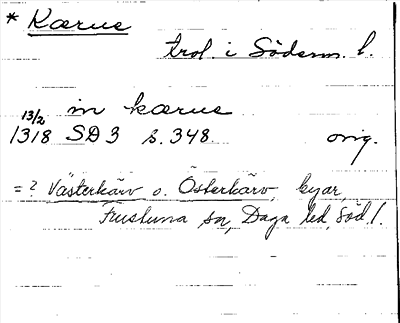 * Kærue
trol. i Söderm. l.
13/2 in kærue
1318 SD 3 s. 348. orig.
= ? Västerkärv o. Österkärv, byar,
Frustuna sn, Daga hd, Söd. l.